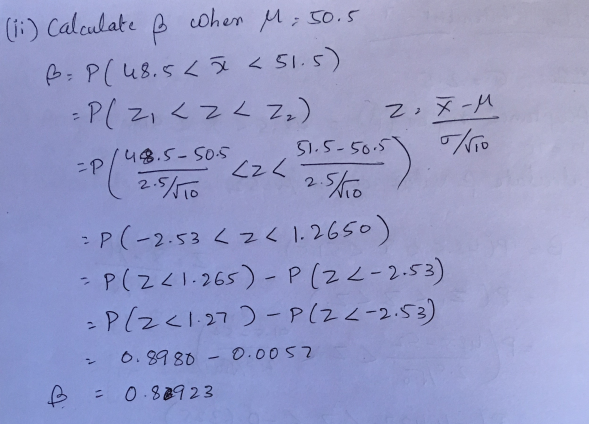 (ii) Calculate β when μ = 50.5
β = P(48.5 < x̄ < 51.5)
= P(Z₁ < Z < Z₂) Z = (x̄ - μ)/(σ/√10)
= P((48.5 - 50.5)/(2.5/√10) < Z < (51.5 - 50.5)/(2.5/√10))
= P(-2.53 < Z < 1.2650)
= P(Z < 1.265) - P(Z < -2.53)
= P(Z < 1.27) - P(Z < -2.53)
= 0.8980 - 0.0057
β = 0.8923